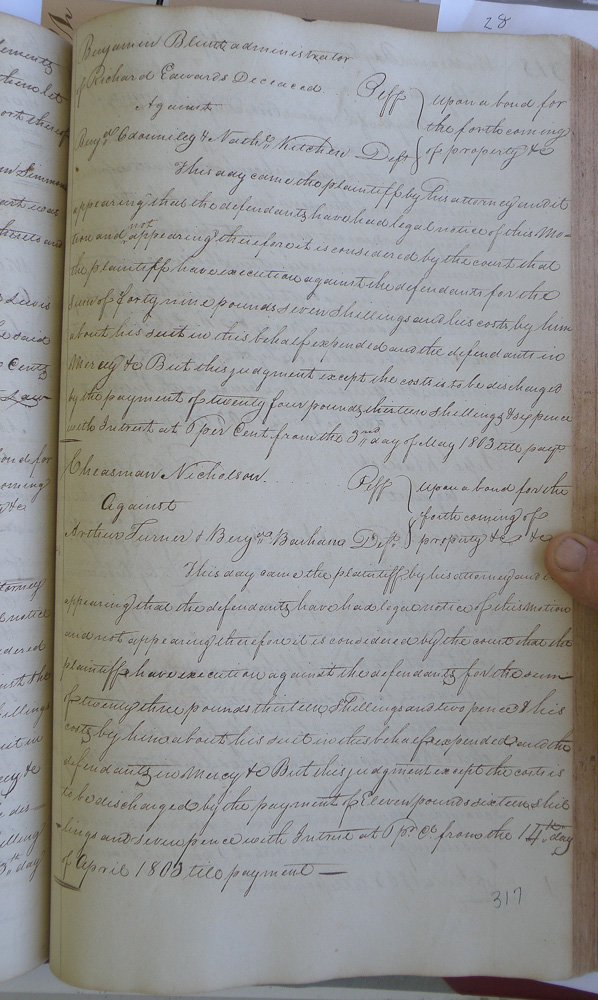 28
Benjamin Blunt administrator
of Richard Edwards Deceased
Against
Plff } upon a bond for
the forthcoming
Benjn & Nathl Kitchen Defts } of property &c
This day came the plaintiff by his attorney and it
appearing that the defendants have had legal notice of this Mo-
tion and not appearing therefore it is considered by the court that
the plaintiff have execution against the defendants for the
sum of forty nine pounds seven Shillings and his costs by him
about his suit in this behalf expended and the defendants in
Mercy &c But this judgment except the costs is to be discharged
by the payment of twenty four pounds thirteen Shillings & six pence
with Intrest at Per Cent from the 3rd day of May 1803 till payt
Cheasman Nicholson
Plff } upon a bond for the
Against
forthcoming of
Arthur Turner & Benjn Barham Defts } property &c &c
This day came the plaintiff by his attorney and
appearing that the defendants have had legal notice of this Motion
and not appearing therefore it is considered by the court that the
plaintiff have execution against the defendants for the sum
of twenty three pounds thirteen Shillings and two pence & his
costs by him about his suit in this behalf expended and the
defendants in Mercy &c But this judgment except the costs is
to be discharged by the payment of Eleven pounds sixteen shil
lings and seven pence with Intrest at Pr Ct from the 14th day
of April 1803 till payment —
317